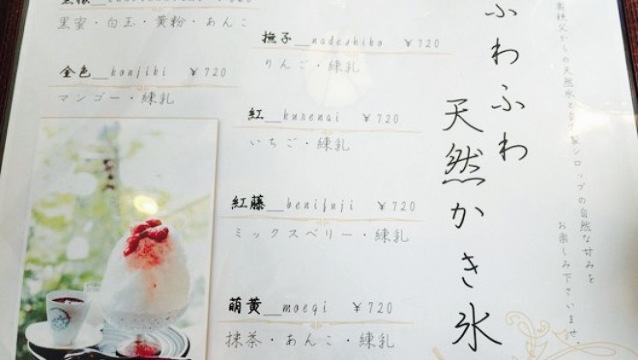 ふわふわ
天然かき氷
の自然な甘みを
お楽しみ下さいませ。
黒蜜・白玉・黄粉・あんこ
金色__konjiki ¥720
マンゴー・練乳
撫子__nadeshiko ¥720
りんご・練乳
紅__kurenai ¥720
いちご・練乳
紅藤__benifuji ¥720
ミックスベリー・練乳
萌黄__moegi ¥720
抹茶・あんこ・練乳